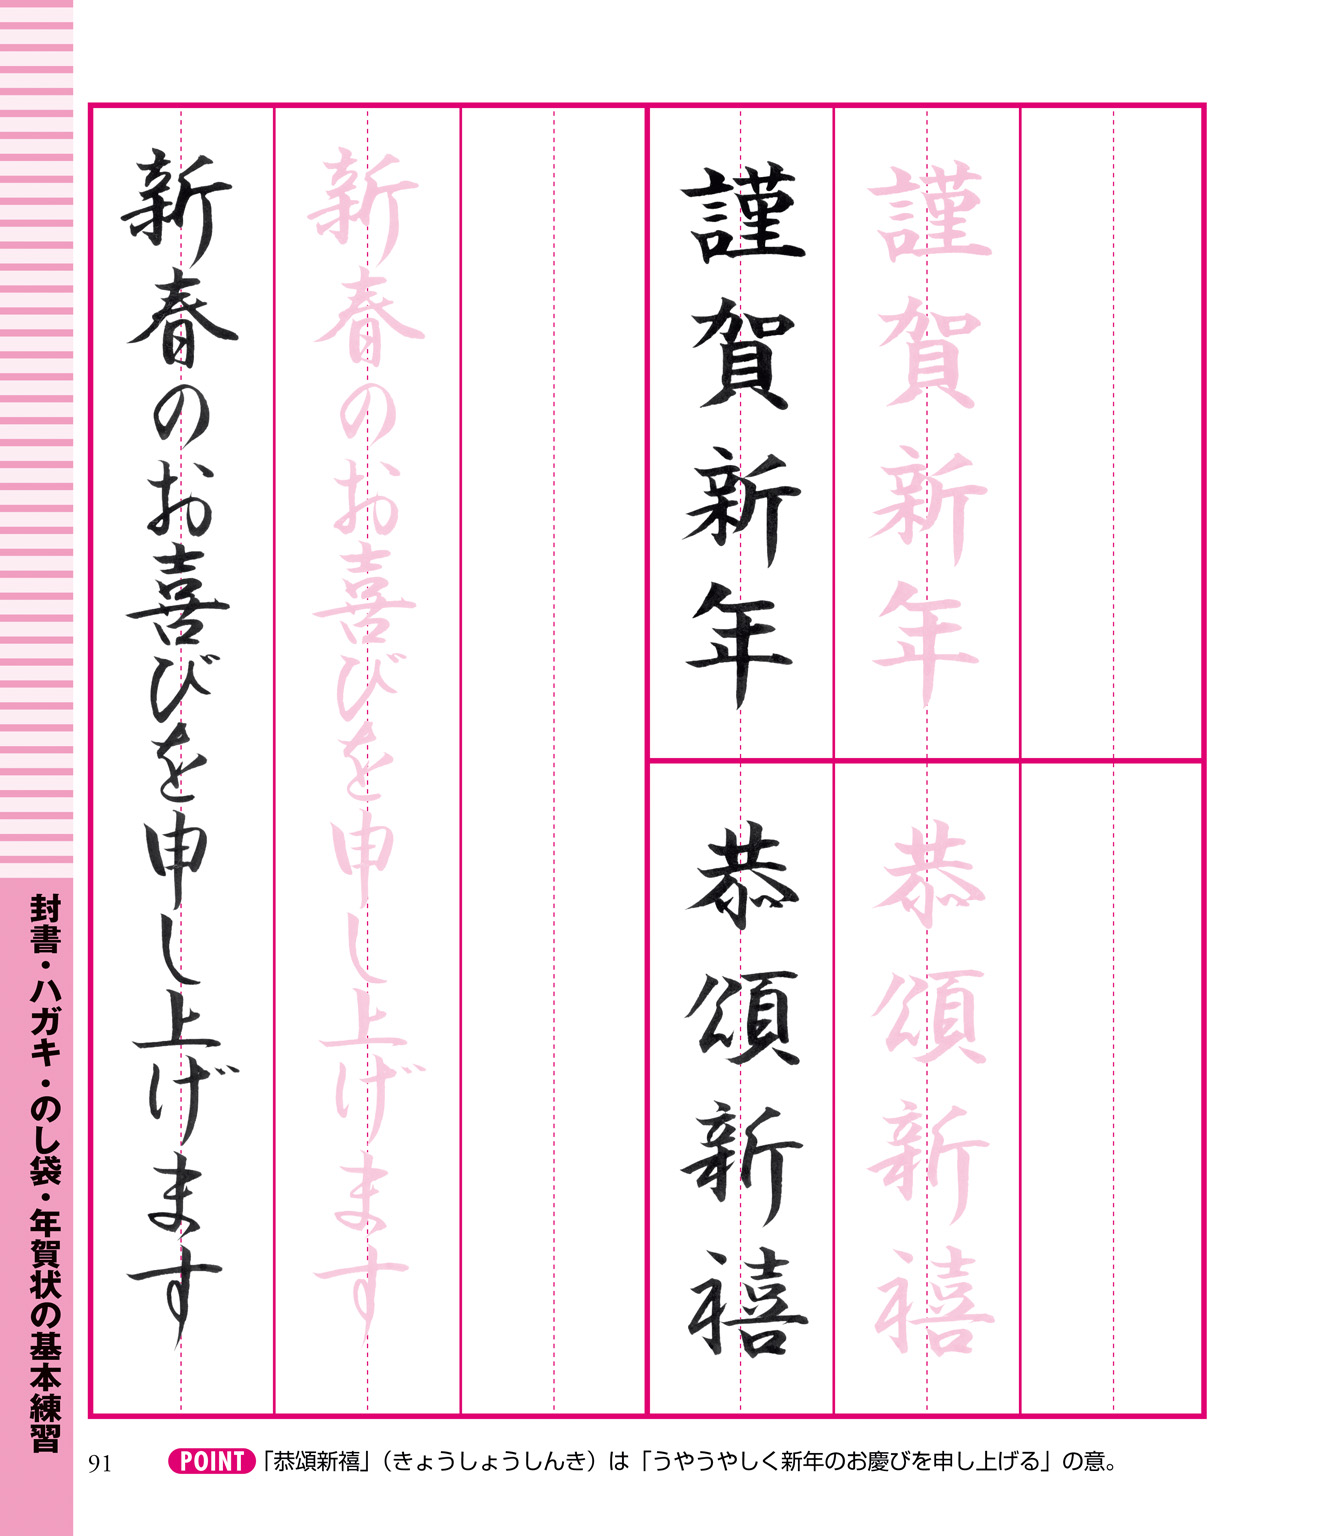 謹賀新年
謹賀新年
恭頌新禧
恭頌新禧
新春のお喜びを申し上げます
新春のお喜びを申し上げます
封書・ハガキ・のし袋・年賀状の基本練習
91
POINT「恭頌新禧」（きょうしょうしんき）は「うやうやしく新年のお慶びを申し上げる」の意。